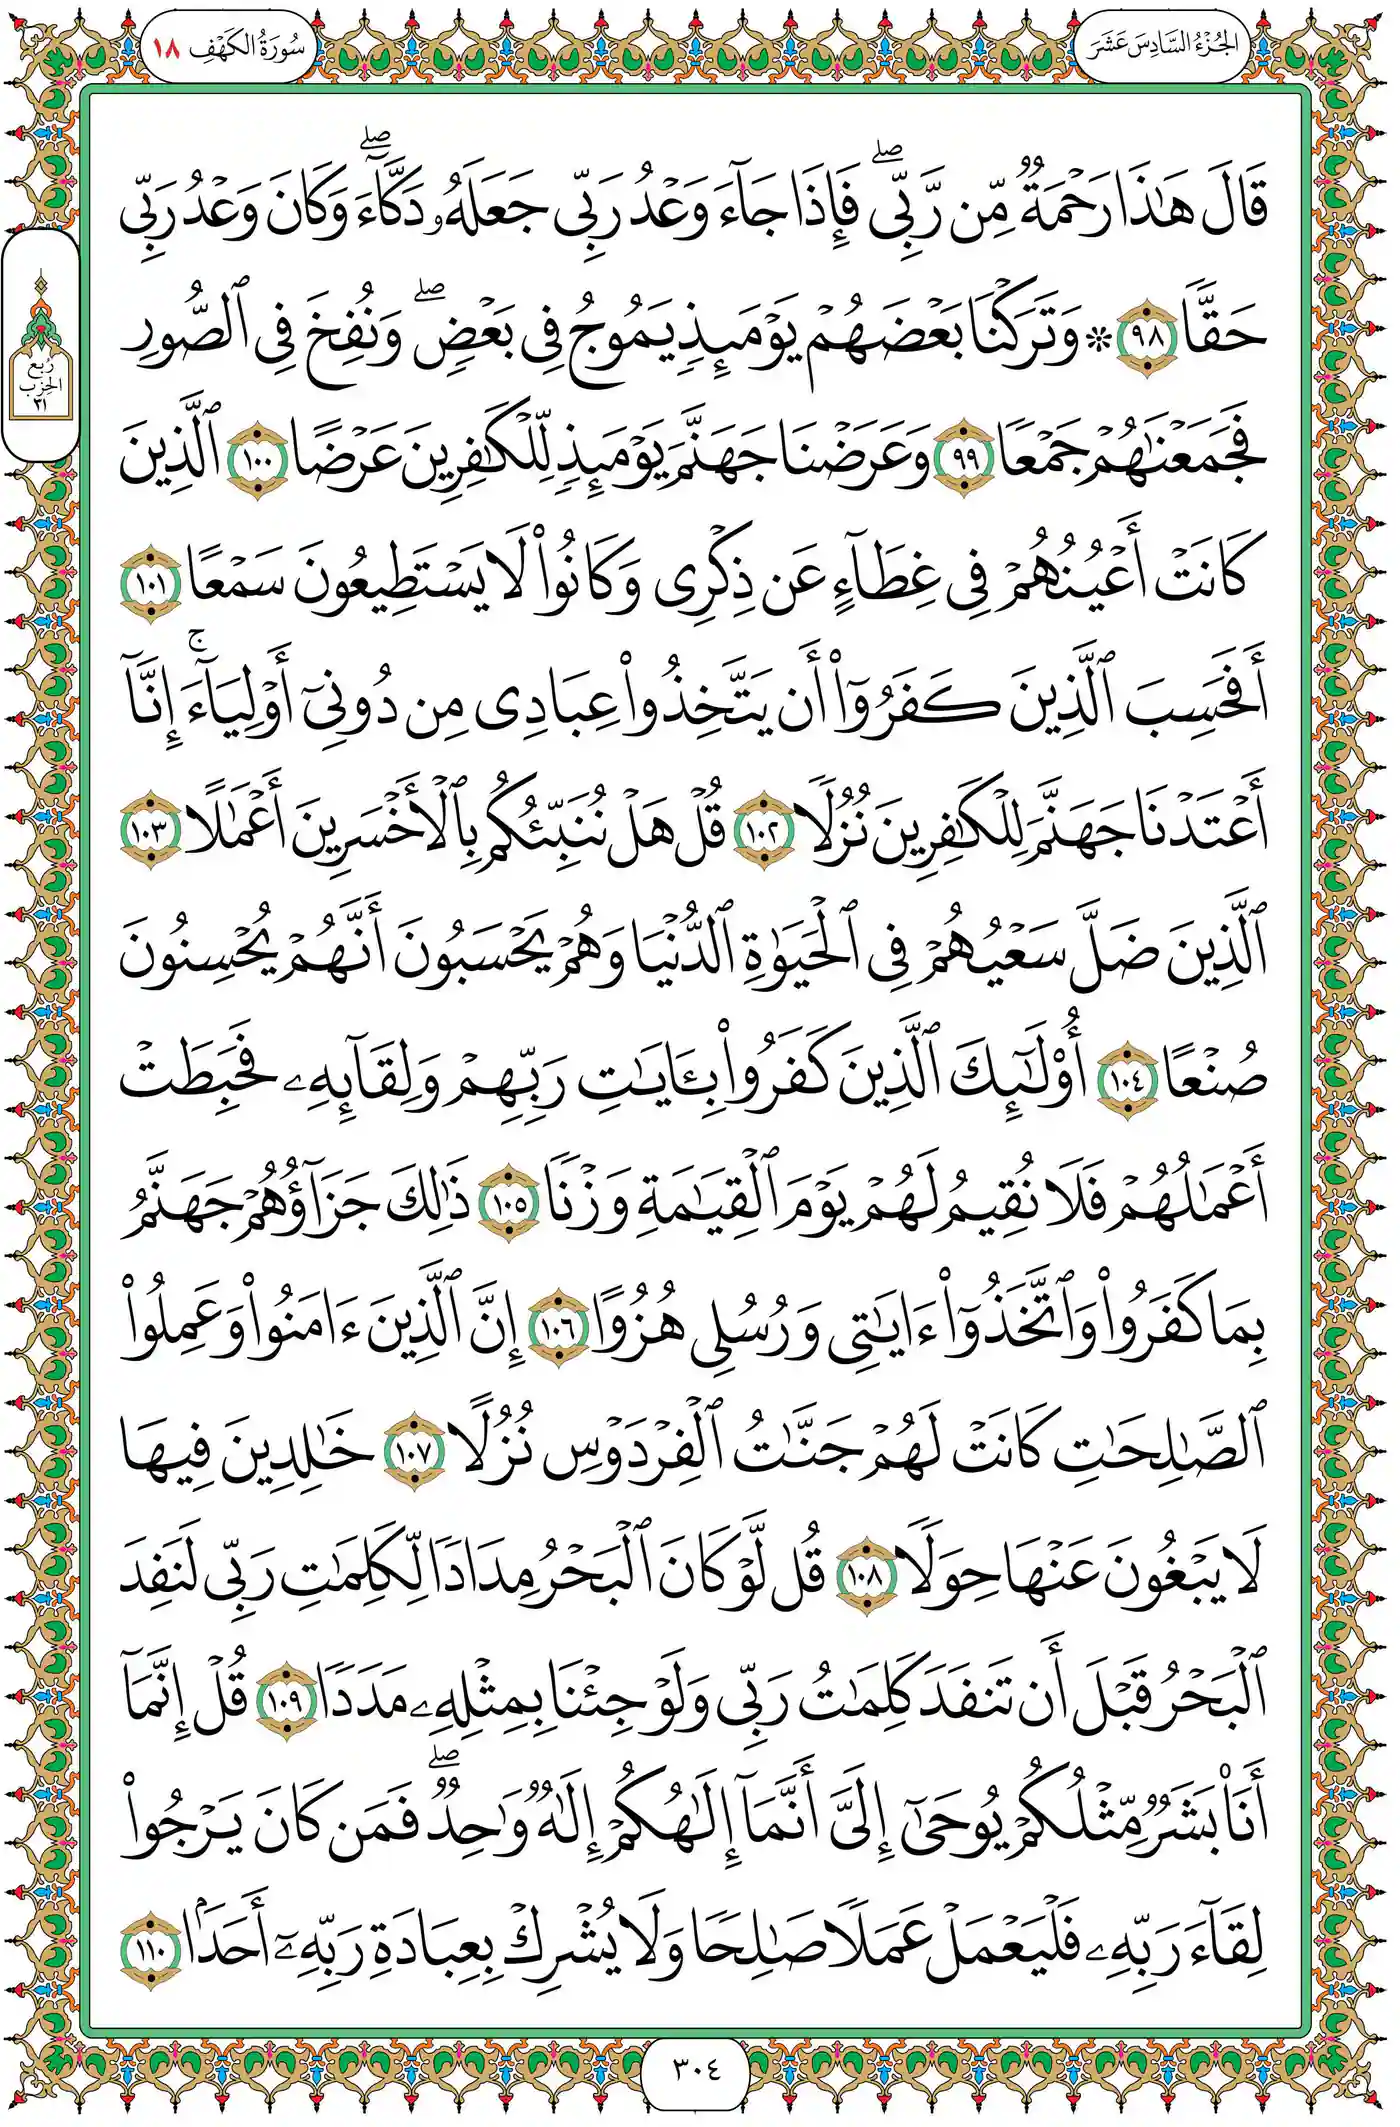 الجُزْءُ السَّادِسَ عَشَرَ
سُورَةُ الكَهْفِ ١٨
قَالَ هَٰذَا رَحْمَةٌ مِّن رَّبِّي ۖ فَإِذَا جَآءَ وَعْدُ رَبِّي جَعَلَهُۥ دَكَّآءَ ۖ وَكَانَ وَعْدُ رَبِّي
حَقًّا ٩٨ ۞ وَتَرَكْنَا بَعْضَهُمْ يَوْمَئِذٍ يَمُوجُ فِي بَعْضٍ ۖ وَنُفِخَ فِي ٱلصُّورِ
فَجَمَعْنَٰهُمْ جَمْعًا ٩٩ وَعَرَضْنَا جَهَنَّمَ يَوْمَئِذٍ لِّلْكَٰفِرِينَ عَرْضًا ١٠٠ ٱلَّذِينَ
كَانَتْ أَعْيُنُهُمْ فِي غِطَآءٍ عَن ذِكْرِي وَكَانُوا۟ لَا يَسْتَطِيعُونَ سَمْعًا ١٠١
أَفَحَسِبَ ٱلَّذِينَ كَفَرُوٓا۟ أَن يَتَّخِذُوا۟ عِبَادِي مِن دُونِيٓ أَوْلِيَآءَ ۚ إِنَّآ
أَعْتَدْنَا جَهَنَّمَ لِلْكَٰفِرِينَ نُزُلًا ١٠٢ قُلْ هَلْ نُنَبِّئُكُم بِٱلْأَخْسَرِينَ أَعْمَٰلًا ١٠٣
ٱلَّذِينَ ضَلَّ سَعْيُهُمْ فِي ٱلْحَيَوٰةِ ٱلدُّنْيَا وَهُمْ يَحْسَبُونَ أَنَّهُمْ يُحْسِنُونَ
صُنْعًا ١٠٤ أُو۟لَٰٓئِكَ ٱلَّذِينَ كَفَرُوا۟ بِـَٔايَٰتِ رَبِّهِمْ وَلِقَآئِهِۦ فَحَبِطَتْ
أَعْمَٰلُهُمْ فَلَا نُقِيمُ لَهُمْ يَوْمَ ٱلْقِيَٰمَةِ وَزْنًا ١٠٥ ذَٰلِكَ جَزَآؤُهُمْ جَهَنَّمُ
بِمَا كَفَرُوا۟ وَٱتَّخَذُوٓا۟ ءَايَٰتِي وَرُسُلِي هُزُوًا ١٠٦ إِنَّ ٱلَّذِينَ ءَامَنُوا۟ وَعَمِلُوا۟
ٱلصَّٰلِحَٰتِ كَانَتْ لَهُمْ جَنَّٰتُ ٱلْفِرْدَوْسِ نُزُلًا ١٠٧ خَٰلِدِينَ فِيهَا
لَا يَبْغُونَ عَنْهَا حِوَلًا ١٠٨ قُل لَّوْ كَانَ ٱلْبَحْرُ مِدَادًا لِّكَلِمَٰتِ رَبِّي لَنَفِدَ
ٱلْبَحْرُ قَبْلَ أَن تَنفَدَ كَلِمَٰتُ رَبِّي وَلَوْ جِئْنَا بِمِثْلِهِۦ مَدَدًا ١٠٩ قُلْ إِنَّمَآ
أَنَا۠ بَشَرٌ مِّثْلُكُمْ يُوحَىٰٓ إِلَيَّ أَنَّمَآ إِلَٰهُكُمْ إِلَٰهٌ وَٰحِدٌ ۖ فَمَن كَانَ يَرْجُوا۟
لِقَآءَ رَبِّهِۦ فَلْيَعْمَلْ عَمَلًا صَٰلِحًا وَلَا يُشْرِكْ بِعِبَادَةِ رَبِّهِۦٓ أَحَدًۢا ١١٠
رُبع
الحِزب
٣١
٣٠٤